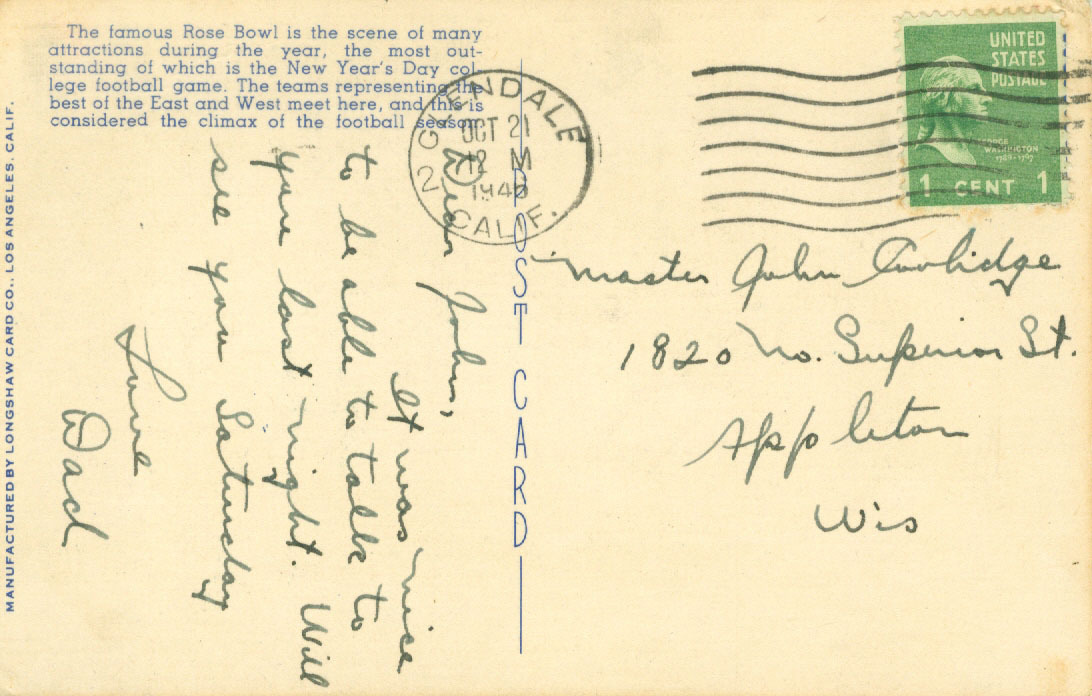 The famous Rose Bowl is the scene of many
attractions during the year, the most out-
standing of which is the New Year's Day col-
lege football game. The teams representing the
best of the East and West meet here, and this is
considered the climax of the football season.
MANUFACTURED BY LONGSHAW CARD CO., LOS ANGELES, CALIF.
POST CARD
GLENDALE
OCT 21
12 M
2
CALIF.
UNITED
STATES
POSTAGE
GEORGE
WASHINGTON
1789-1797
1 CENT 1
Dear John,
It was nice
to be able to talk to
you last night. Will
see you Saturday
Love
Dad
Master John Coolidge
1820 No. Superior St.
Appleton
Wis